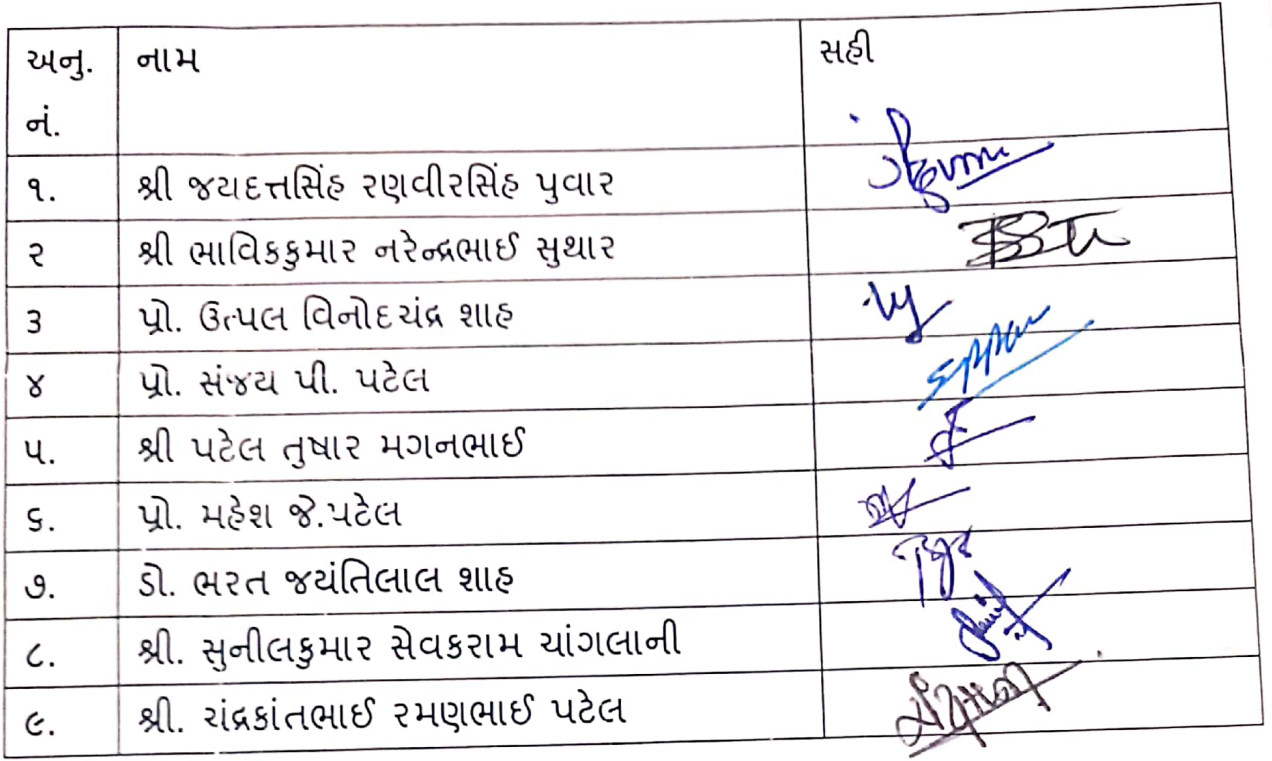 અનુ. નં. નામ સહી
૧. શ્રી જયદત્તસિંહ રણવીરસિંહ પુવાર
૨ શ્રી ભાવિકકુમાર નરેન્દ્રભાઈ સુથાર
૩ પ્રો. ઉત્પલ વિનોદચંદ્ર શાહ
૪ પ્રો. સંજય પી. પટેલ
૫. શ્રી પટેલ તુષાર મગનભાઈ
૬. પ્રો. મહેશ જે.પટેલ
૭. ડો. ભરત જયંતિલાલ શાહ
૮. શ્રી. સુનીલકુમાર સેવકરામ ચાંગલાની
૯. શ્રી. ચંદ્રકાંતભાઈ રમણભાઈ પટેલ